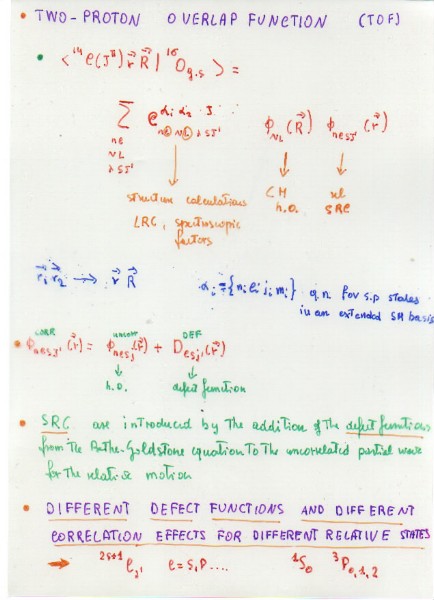 • TWO-PROTON OVERLAP FUNCTION (TOF)
• < ¹⁴C(J^π) r⃗ R⃗ | ¹⁶O g.s > =
∑ C^{α₁ α₂ J}_{nℓ NL λSJ'} ϕ_{NL}(R⃗) ϕ_{nℓSJ'}(r⃗)
nℓ
NL
λSJ'
structure calculations CM rel
LRC, spectroscopic h.o. SRC
factors
r⃗₁ r⃗₂ → r⃗ R⃗ αᵢ ≡ {nᵢ ℓᵢ jᵢ mᵢ} q.n for s.p states
in an extended SM basis
CORR uncorr DEF
• ϕ_{nℓSJ'}(r⃗) = ϕ_{nℓSJ'}(r⃗) + D_{ℓSJ'}(r⃗)
h.o. defect function
• SRC are introduced by the addition of the defect functions
from the Bethe-Goldstone equation to the uncorrelated partial wave
for the relative motion
• DIFFERENT DEFECT FUNCTIONS AND DIFFERENT
CORRELATION EFFECTS FOR DIFFERENT RELATIVE STATES
→ ^{2S+1}ℓ_{J'} ℓ = S, P .... ¹S₀ ³P₀,₁,₂